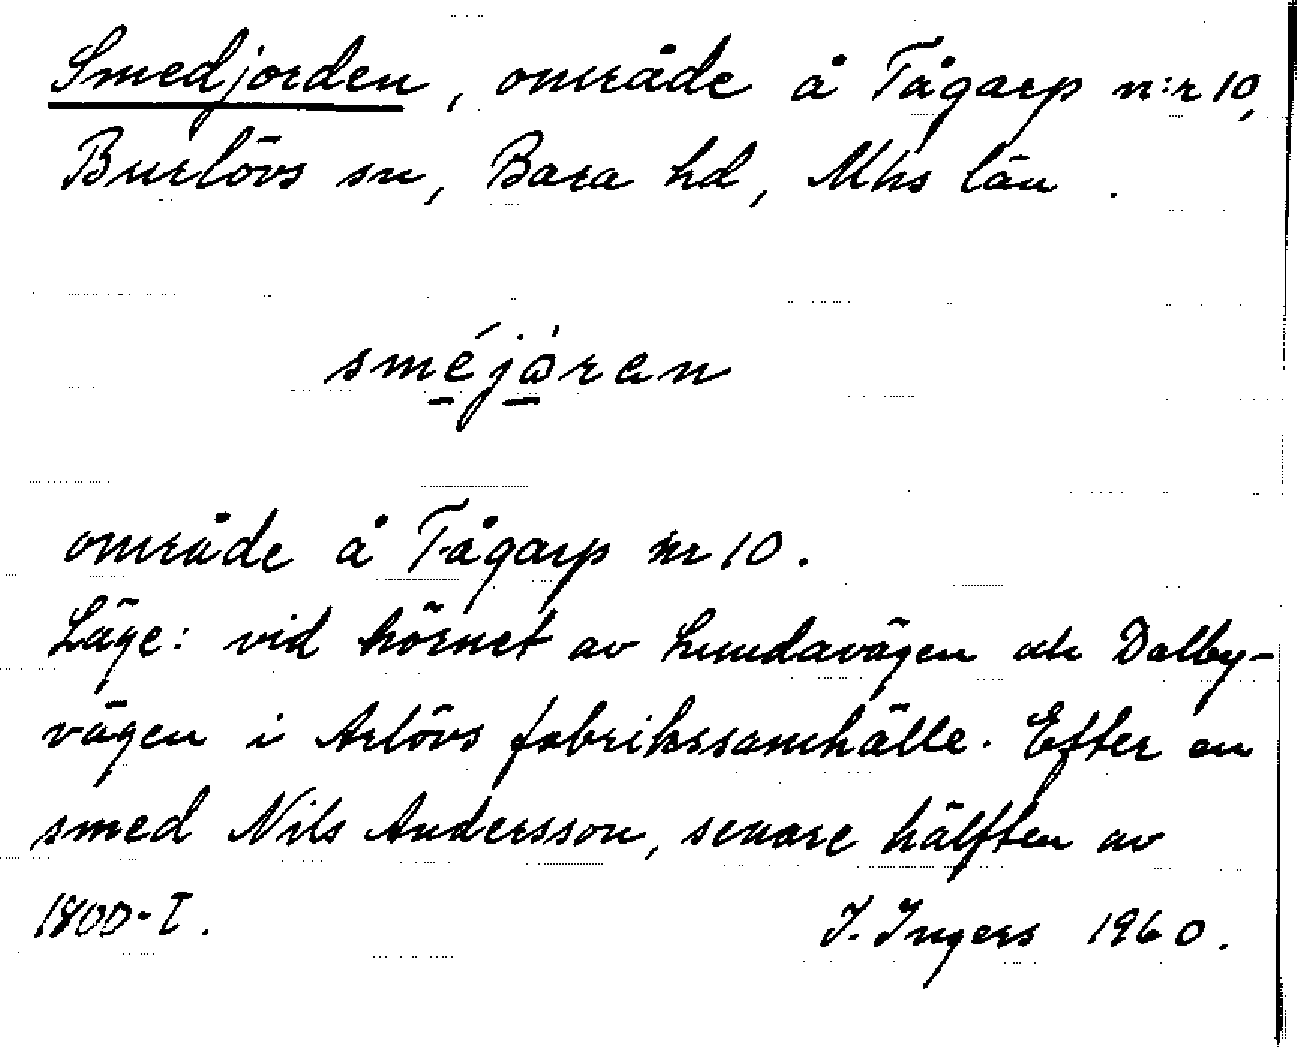 Smedjorden, område å Tågarp n:r 10,
Burlövs sn, Bara hd, Mhs län.
sméjǫ̀ran
område å Tågarp nr 10.
Läge: vid hörnet av Lundavägen och Dalby-
vägen i Arlövs fabrikssamhälle. Efter en
smed Nils Andersson, senare hälften av
1800-T.
I. Ingers 1960.